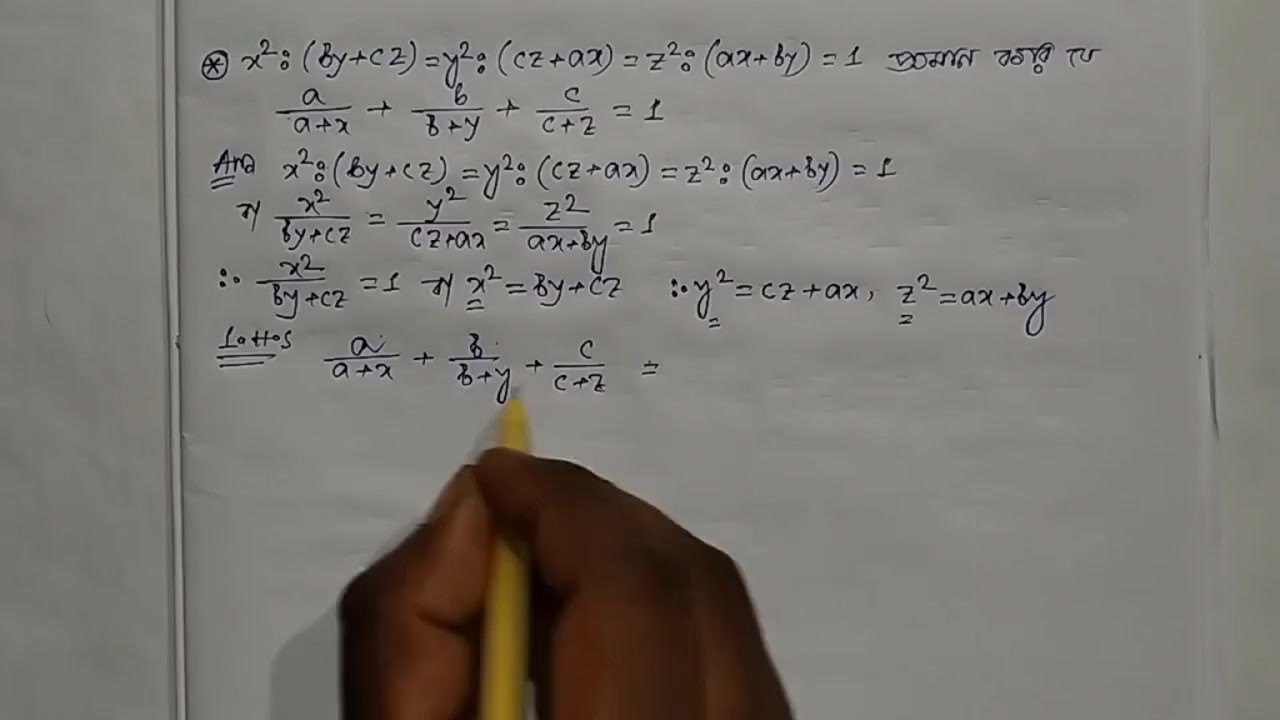 ⊛ x²:(by+cz)=y²:(cz+ax)=z²:(ax+by)=1 প্রমাণ করি যে
a/(a+x) + b/(b+y) + c/(c+z) = 1
Ans x²:(by+cz)=y²:(cz+ax)=z²:(ax+by)=1
বা x²/(by+cz) = y²/(cz+ax) = z²/(ax+by) = 1
∴ x²/(by+cz) = 1 বা x²=by+cz ∴ y²=cz+ax, z²=ax+by
a/(a+x) + b/(b+y) + c/(c+z) =